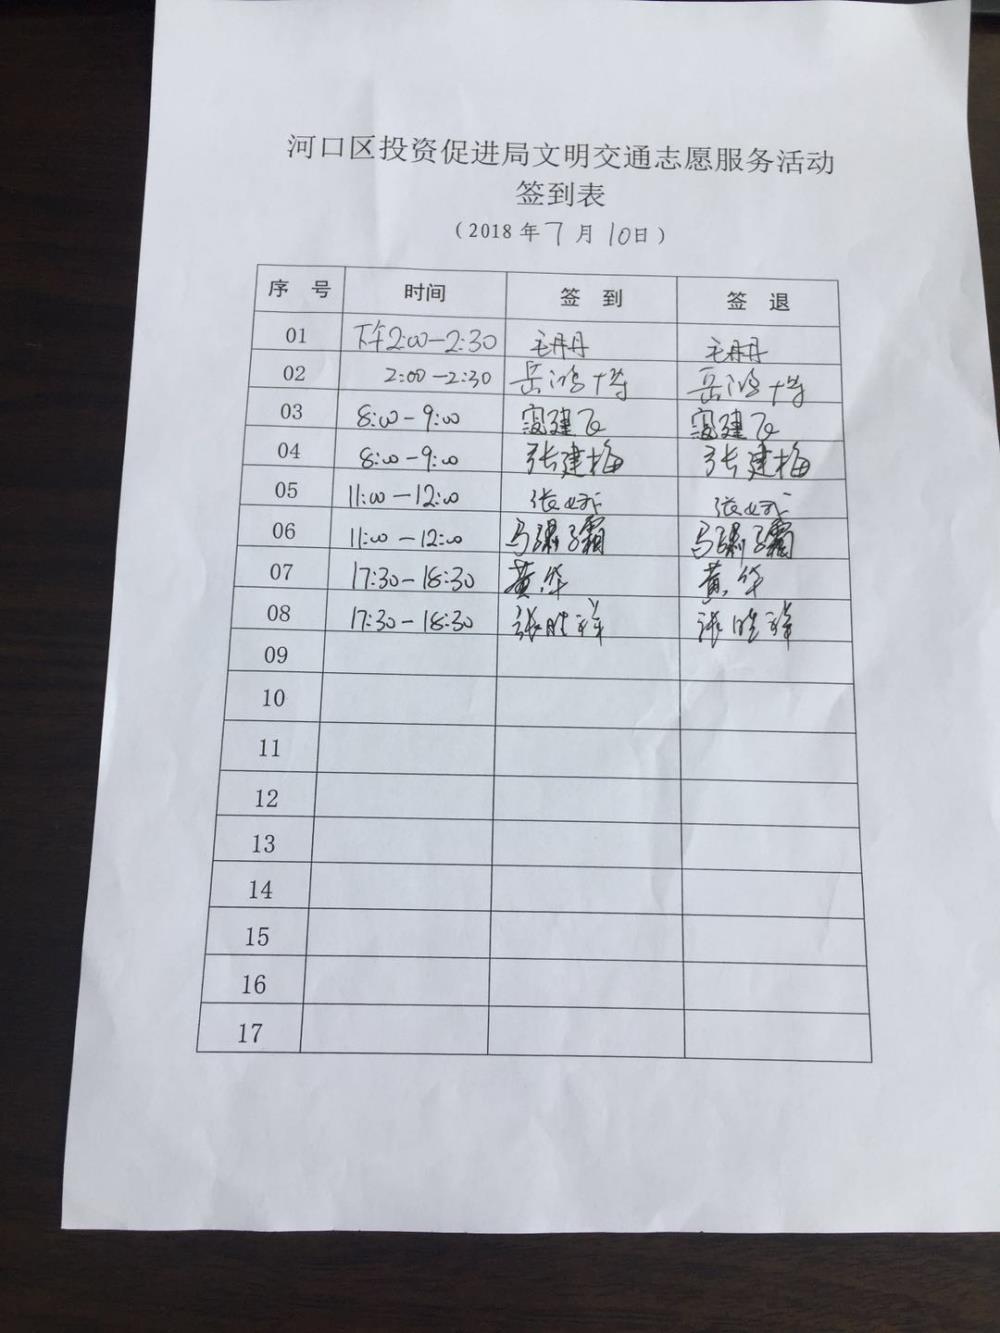 河口区投资促进局文明交通志愿服务活动
签到表
（2018年7月10日）
序 号 时间 签 到 签 退
01 下午2:00-2:30 毛丹丹 毛丹丹
02 2:00-2:30 岳鸿博 岳鸿博
03 8:00-9:00 寇建飞 寇建飞
04 8:00-9:00 张建梅 张建梅
05 11:00-12:00 张 张
06 11:00-12:00 马 霜 马 霜
07 17:30-18:30 黄华 黄华
08 17:30-18:30 张胜祥 张胜祥
09
10
11
12
13
14
15
16
17